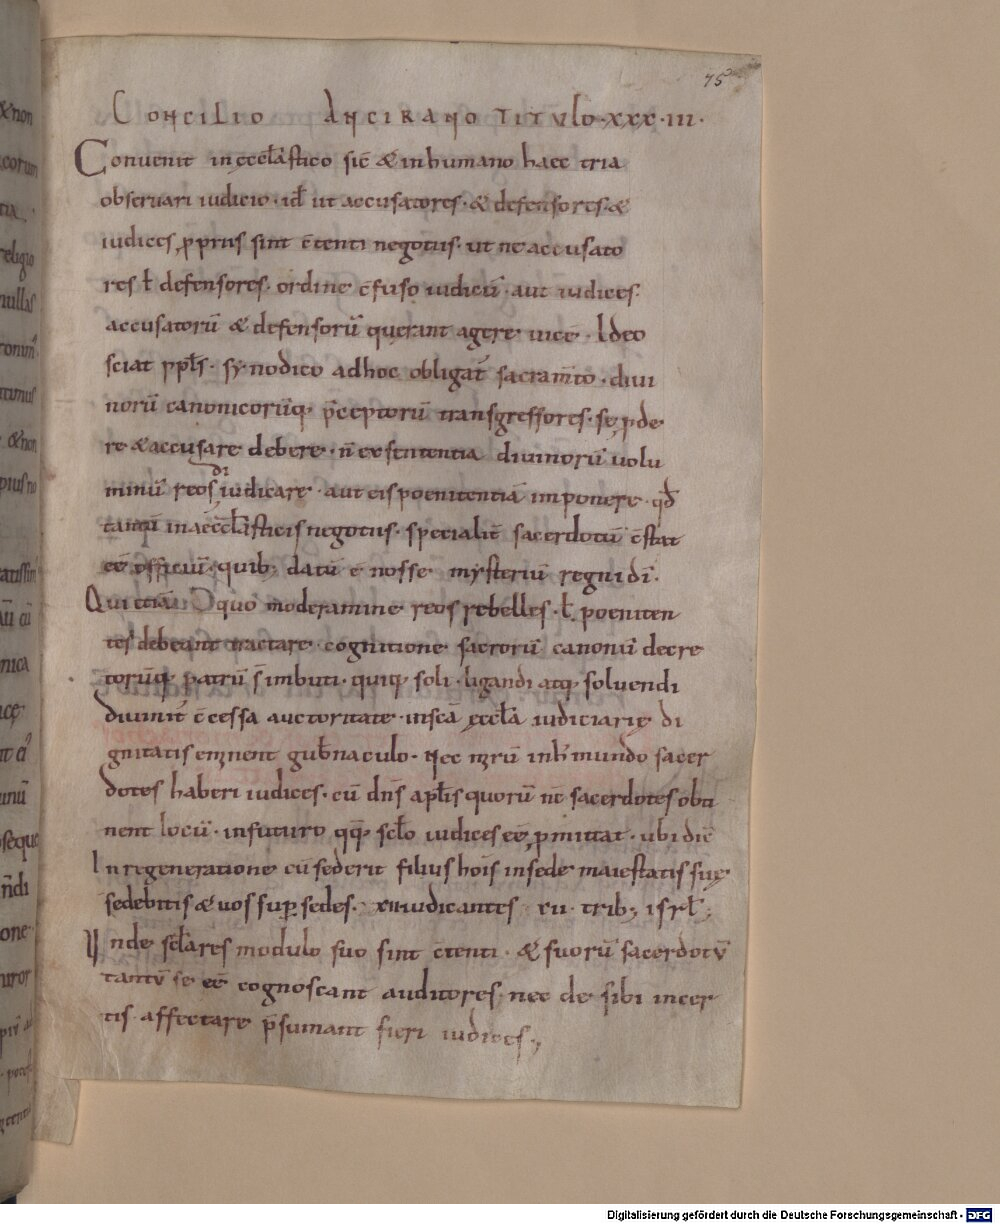 75
CONCILIO ANCIRANO TITULO·XXX·III·
Conuenit in ęccłastico sic̄ & in humano haec tria
obseruari iudicio· id ut accusatores· & defensores· &
iudices ꝓpriis sint c̄tenti negotiis· ut ne accusato
res ł defensores· ordine c̄fuso iudiciū· aut iudices·
accusatorū & defensorū querant agere uicē· Ideo
sciat pplˉs· synodico ad hoc obligat̄ sacram̄to· diui
norū canonicorūq; p̄ceptorū transgressores· se ꝓde
re & accusare debere· n̄ ex sententia diuinorū uolu
minū reos diiudicare· aut eis poenitentiā imponere· qd̄
tamū in aeccłasticis negotiis· specialit̄ sacerdotū c̄stat
eē officiū· quib; datū ē nosse mysteriū regni dī·
Qui etiā quo moderamine reos rebelles· ł poeniten
tes debeant tractare cognitione sacrorū canonū decre
torūq; patrū s̄ imbuti· quiq; soli· ligandi atq; soluendi
diuinit̄ c̄cessa auctoritate· in sc̄a ęccła iudiciarię di
gnitatis eminent gub̄naculo· Nec mirū in h̄ mundo sacer
dotes haberi iudices· cū dn̄s apłis quorū nc̄ sacerdotes obti
nent locū· in futuro qq; scło iudices eē ꝓmittat· ubi dic̄
In regeneratione cū sederit filius hois in sede maiestatis suę
sedebitis & uos sup̱ sedes· xii· iudicantes xii· trib; isrł·;
Unde scłares modulo suo sint c̄tenti· & suorū sacerdotū
tantū se eē cognoscant auditores; nec de sibi incer
tis affectare p̄sumant fieri iudices·;
&non
corum
tia
religio
nullas
&non
nica
one
Digitalisierung gefördert durch die Deutsche Forschungsgemeinschaft - DFG